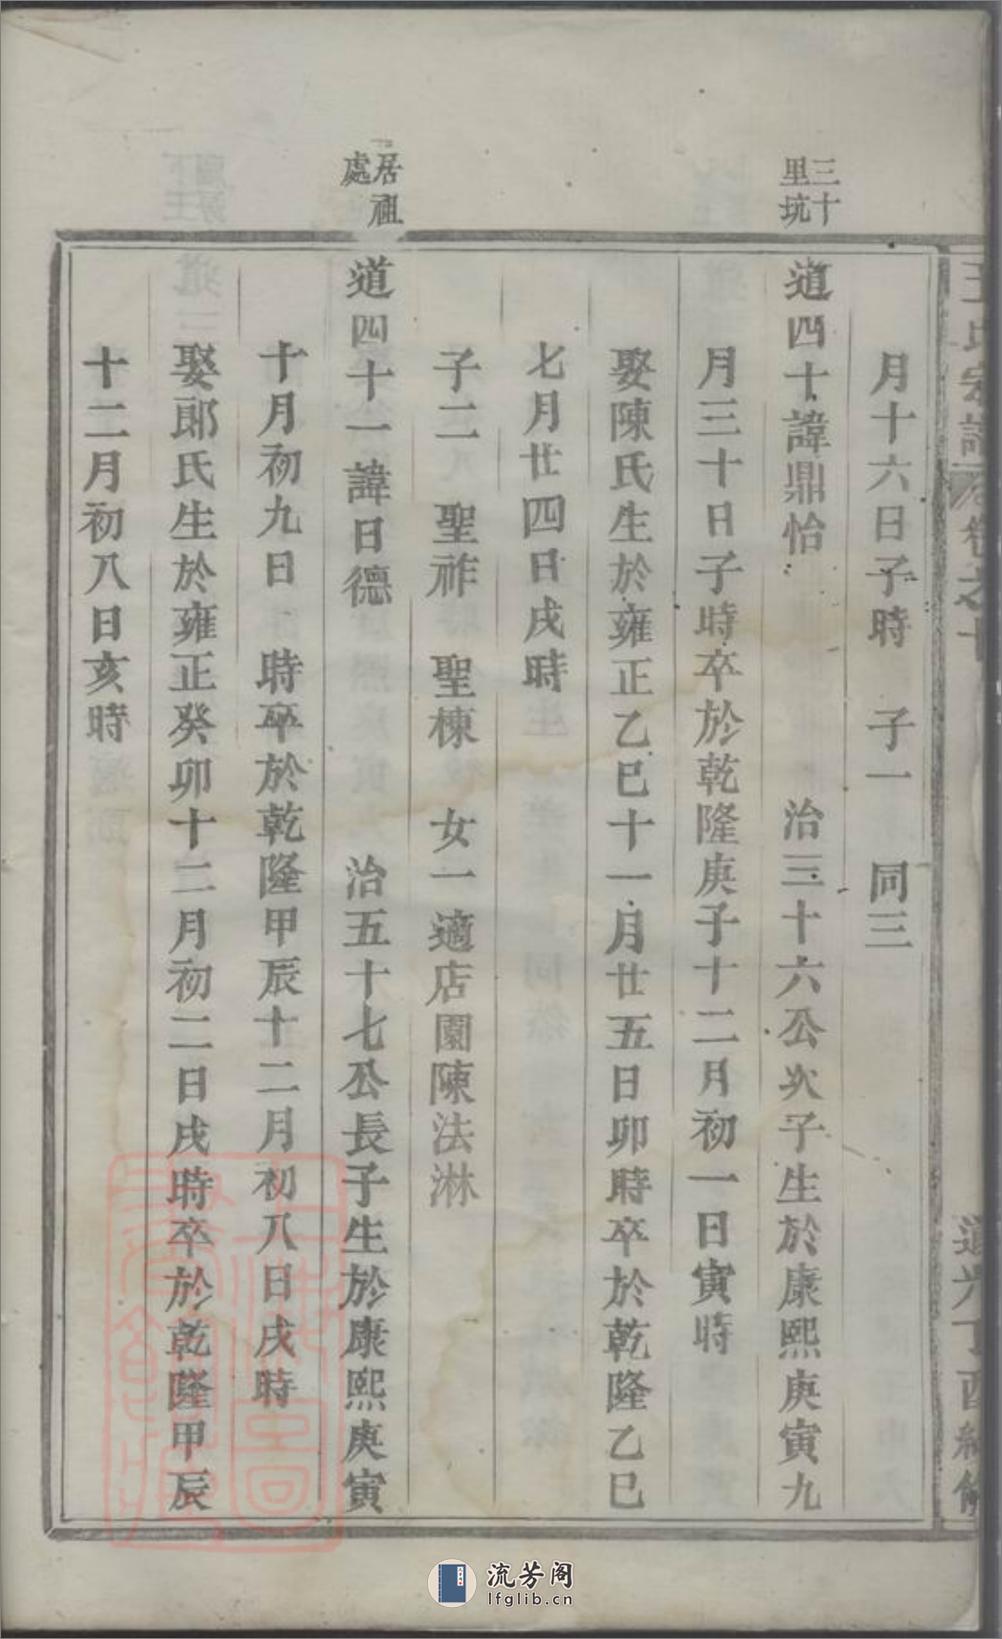 王氏宗譜 卷之十
道光丁酉續修
月十六日子時 子一 同三
三十里坑
道四十諱鼎怡 治三十六公次子生於康熙庚寅九
月三十日子時卒於乾隆庚子十二月初一日寅時
娶陳氏生於雍正乙巳十一月廿五日卯時卒於乾隆乙巳
七月廿四日戌時
子二 聖祚 聖棟 女一適店園陳法淋
居祖處
道四十一諱日德 治五十七公長子生於康熙庚寅
十月初九日 時卒於乾隆甲辰十二月初八日戌時
娶郎氏生於雍正癸卯十二月初二日戌時卒於乾隆甲辰
十二月初八日亥時
流芳阁
lfglib.cn